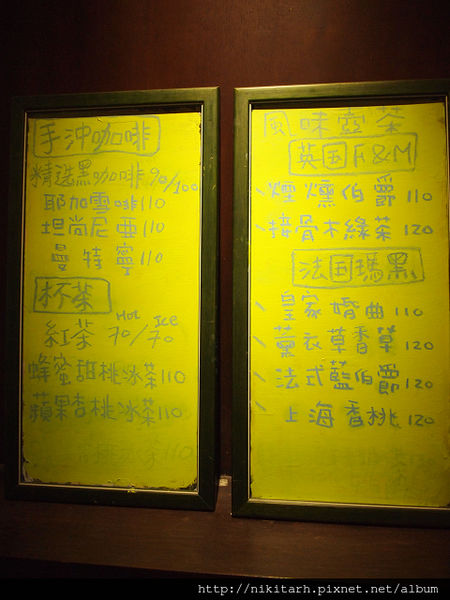 手沖咖啡
精選黑咖啡 90/100
耶加雪啡 110
坦尚尼亞 110
曼特寧 110
杯茶
Hot Ice
紅茶 70/70
蜂蜜甜桃冰茶 110
蘋果杏桃冰茶 110
110
風味壺茶
英国 F&M
煙燻伯爵 110
接骨木綠茶 120
法国瑪黑
皇家婚曲 110
薰衣草香草 120
法式藍伯爵 120
上海香桃 120
http://nikitarh.pixnet.net/album